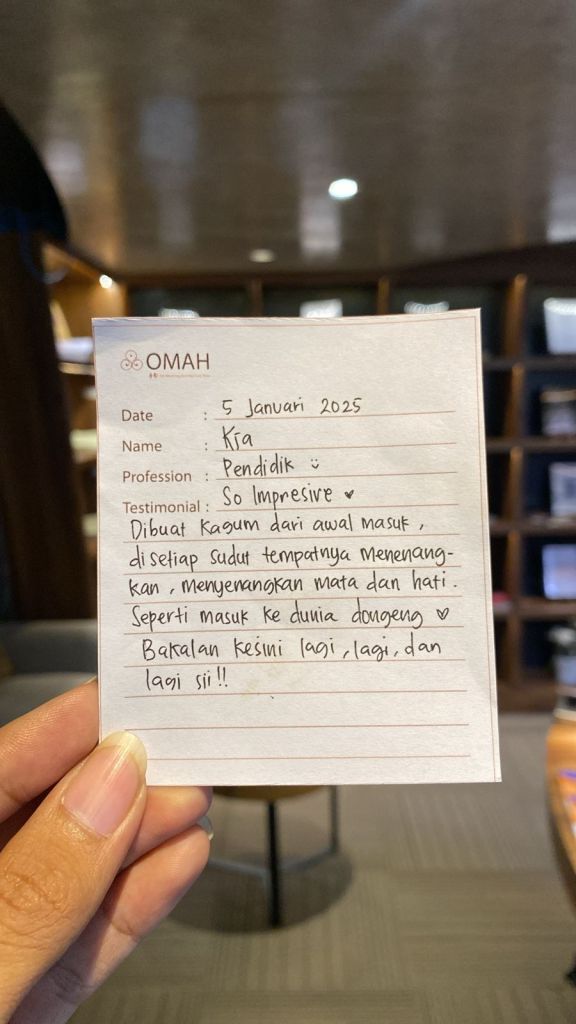 OMAH
Date : 5 Januari 2025
Name : Kia
Profession : Pendidik
Testimonial : So Impresive ♥
Dibuat kagum dari awal masuk,
disetiap sudut tempatnya menenang-
kan, menyenangkan mata dan hati.
Seperti masuk ke dunia dongeng ♡
Bakalan kesini lagi, lagi, dan
lagi sii!!